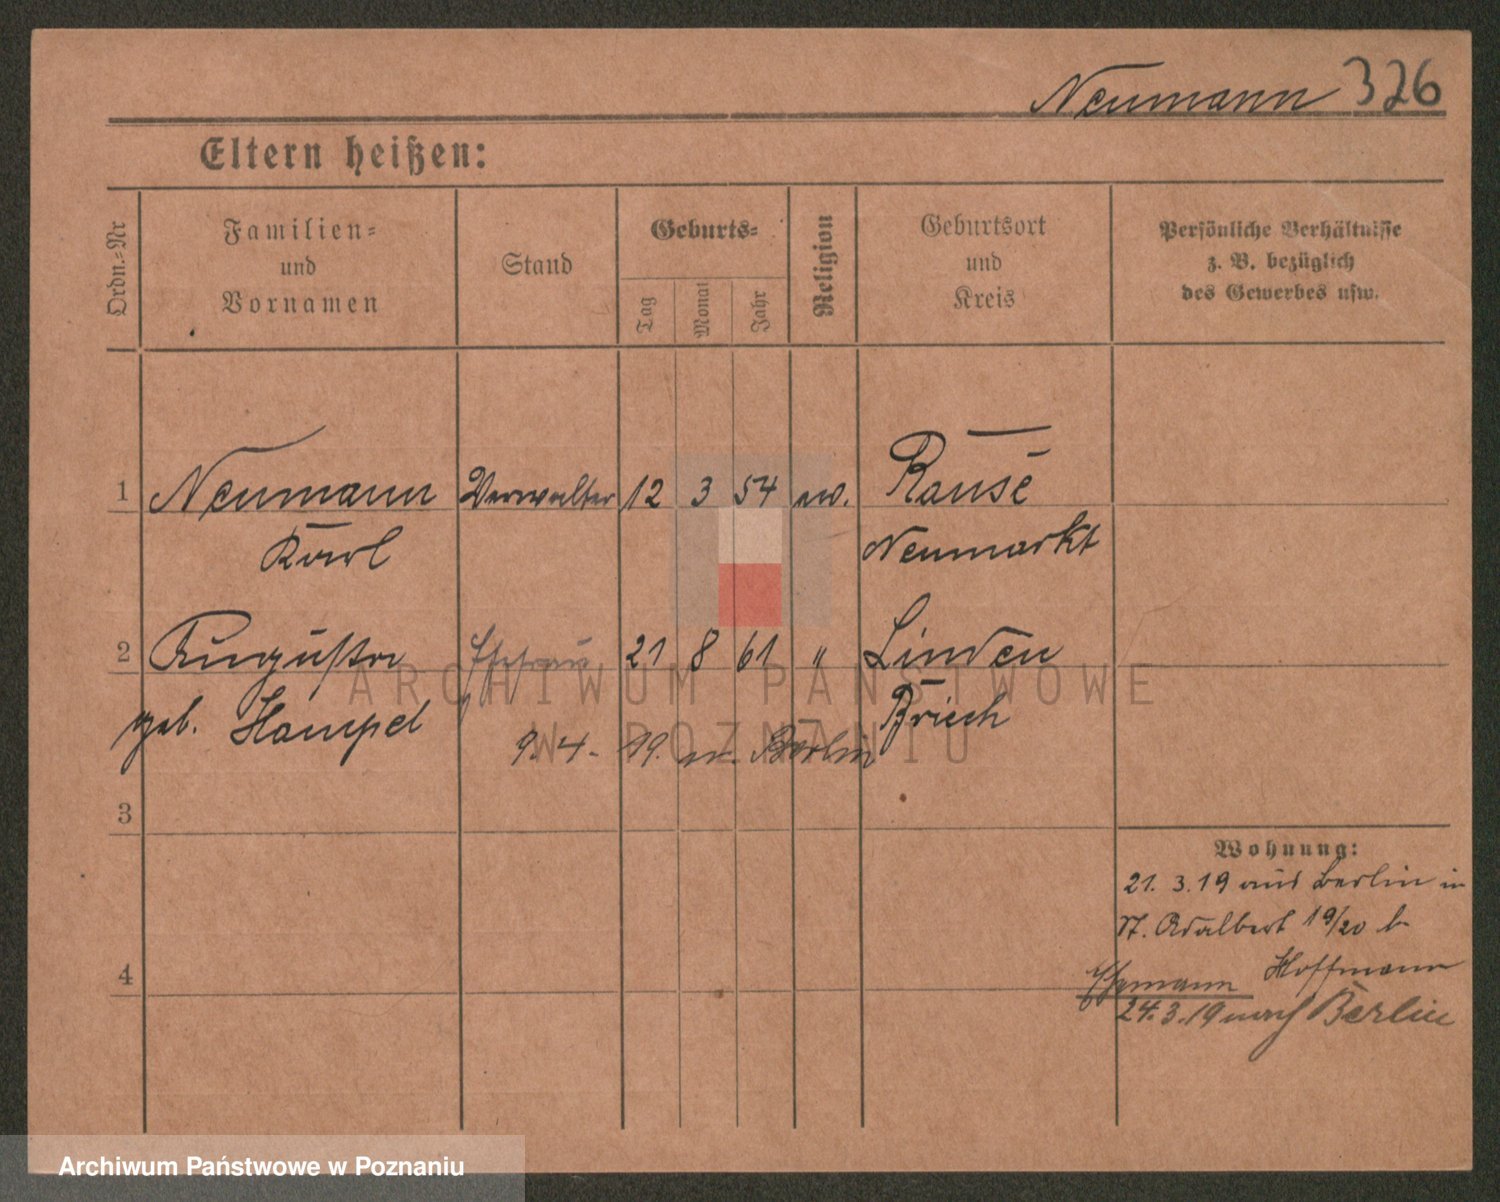 Neumann 326
Eltern heißen:
Ordn.-Nr
Familien-
und
Vornamen
Stand
Geburts-
Tag
Monat
Jahr
Religion
Geburtsort
und
Kreis
Persönliche Verhältnisse
z. B. bezüglich
des Gewerbes usw.
1 Neumann Verwalter 12 3 54 ev. Rausse
Karl Neumarkt
2 Auguste Ehefrau 21 8 61 " Linden
geb. Hampel Briech
9.4. 19. n. Berlin
3
Wohnung:
21. 3. 19 aus Berlin in
St. Adalbert 19/20 b
4 Hoffmann
Ehemann
24.3.19 nach Berlin
ARCHIWUM PAŃSTWOWE
W POZNANIU
Archiwum Państwowe w Poznaniu